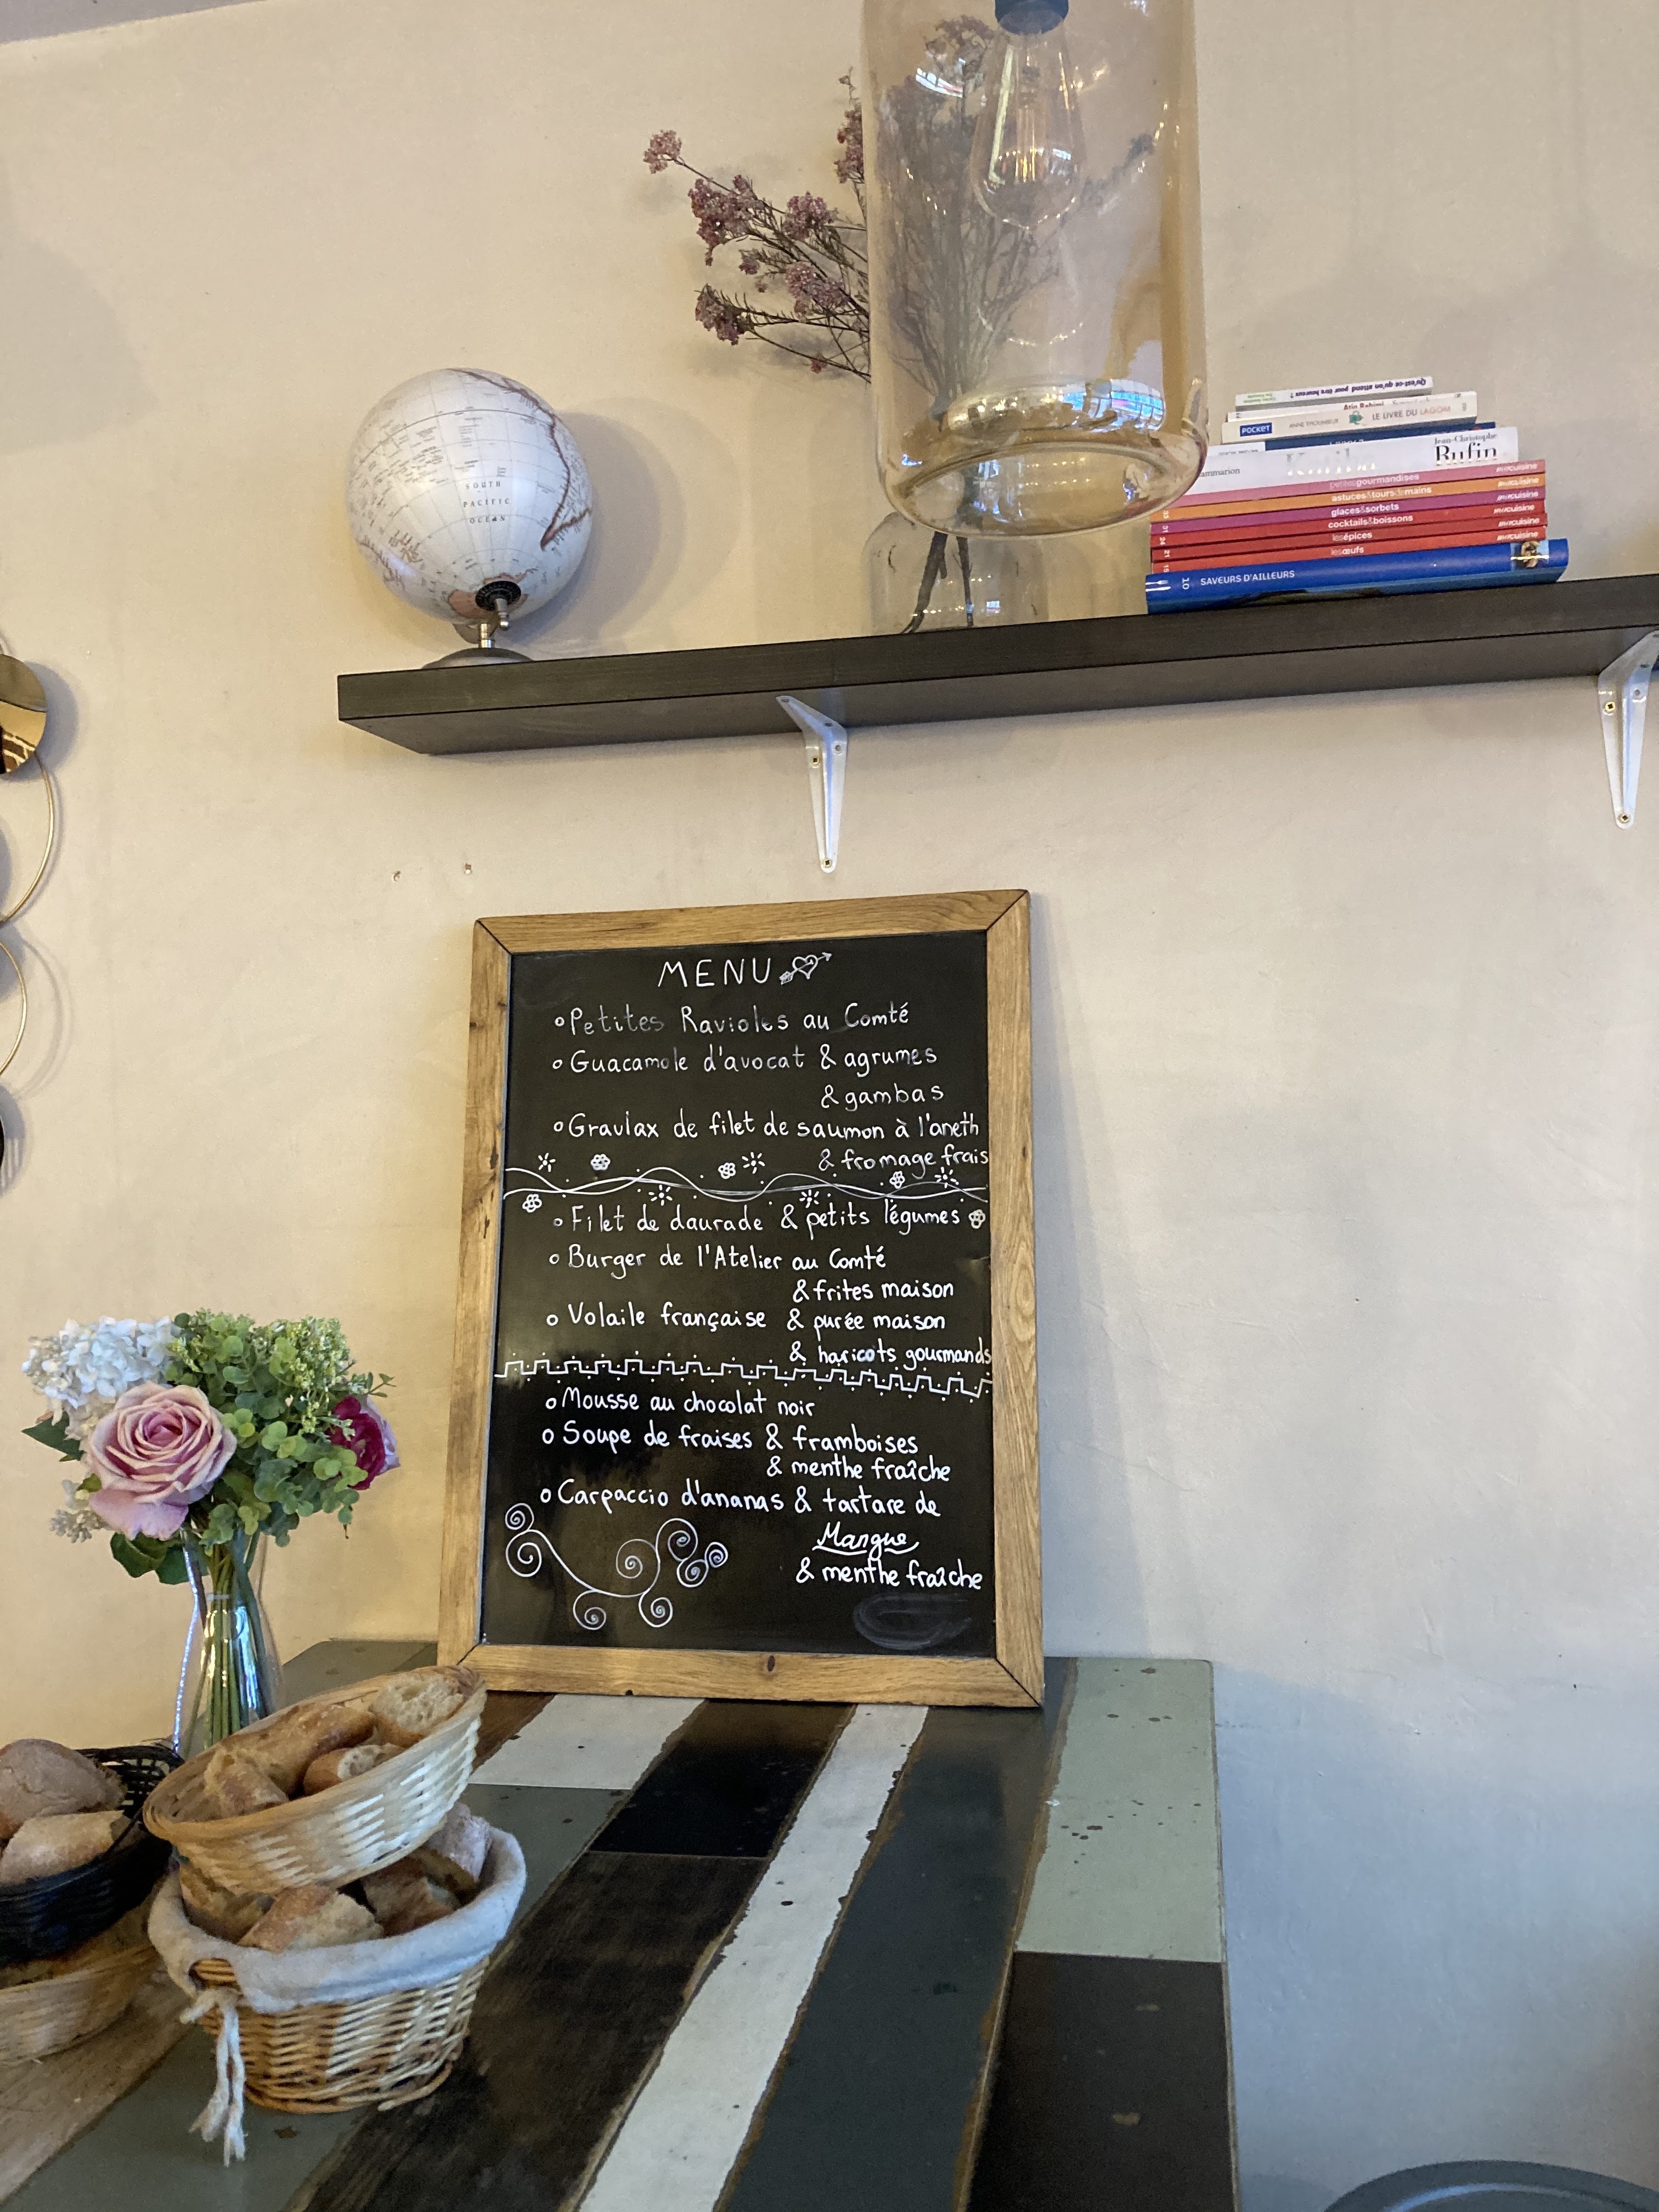 SOUTH
PACIFIC
OCEAN
Qu'est-ce qu'on attend pour être heureux ?
POCKET ANNE THOUMIEUX LE LIVRE DU LAGOM
Jean-Christophe
Rufin
petitesgourmandises
astuces&toursdemains
glaces&sorbets
cocktails&boissons
lesépices
lesœufs
10 SAVEURS D'AILLEURS
MENU
Petites Ravioles au Comté
Guacamole d'avocat & agrumes
& gambas
Gravlax de filet de saumon à l'aneth
& fromage frais
Filet de daurade & petits légumes
Burger de l'Atelier au Comté
& frites maison
Volaile française & purée maison
& haricots gourmands
Mousse au chocolat noir
Soupe de fraises & framboises
& menthe fraîche
Carpaccio d'ananas & tartare de
Mangue
& menthe fraîche